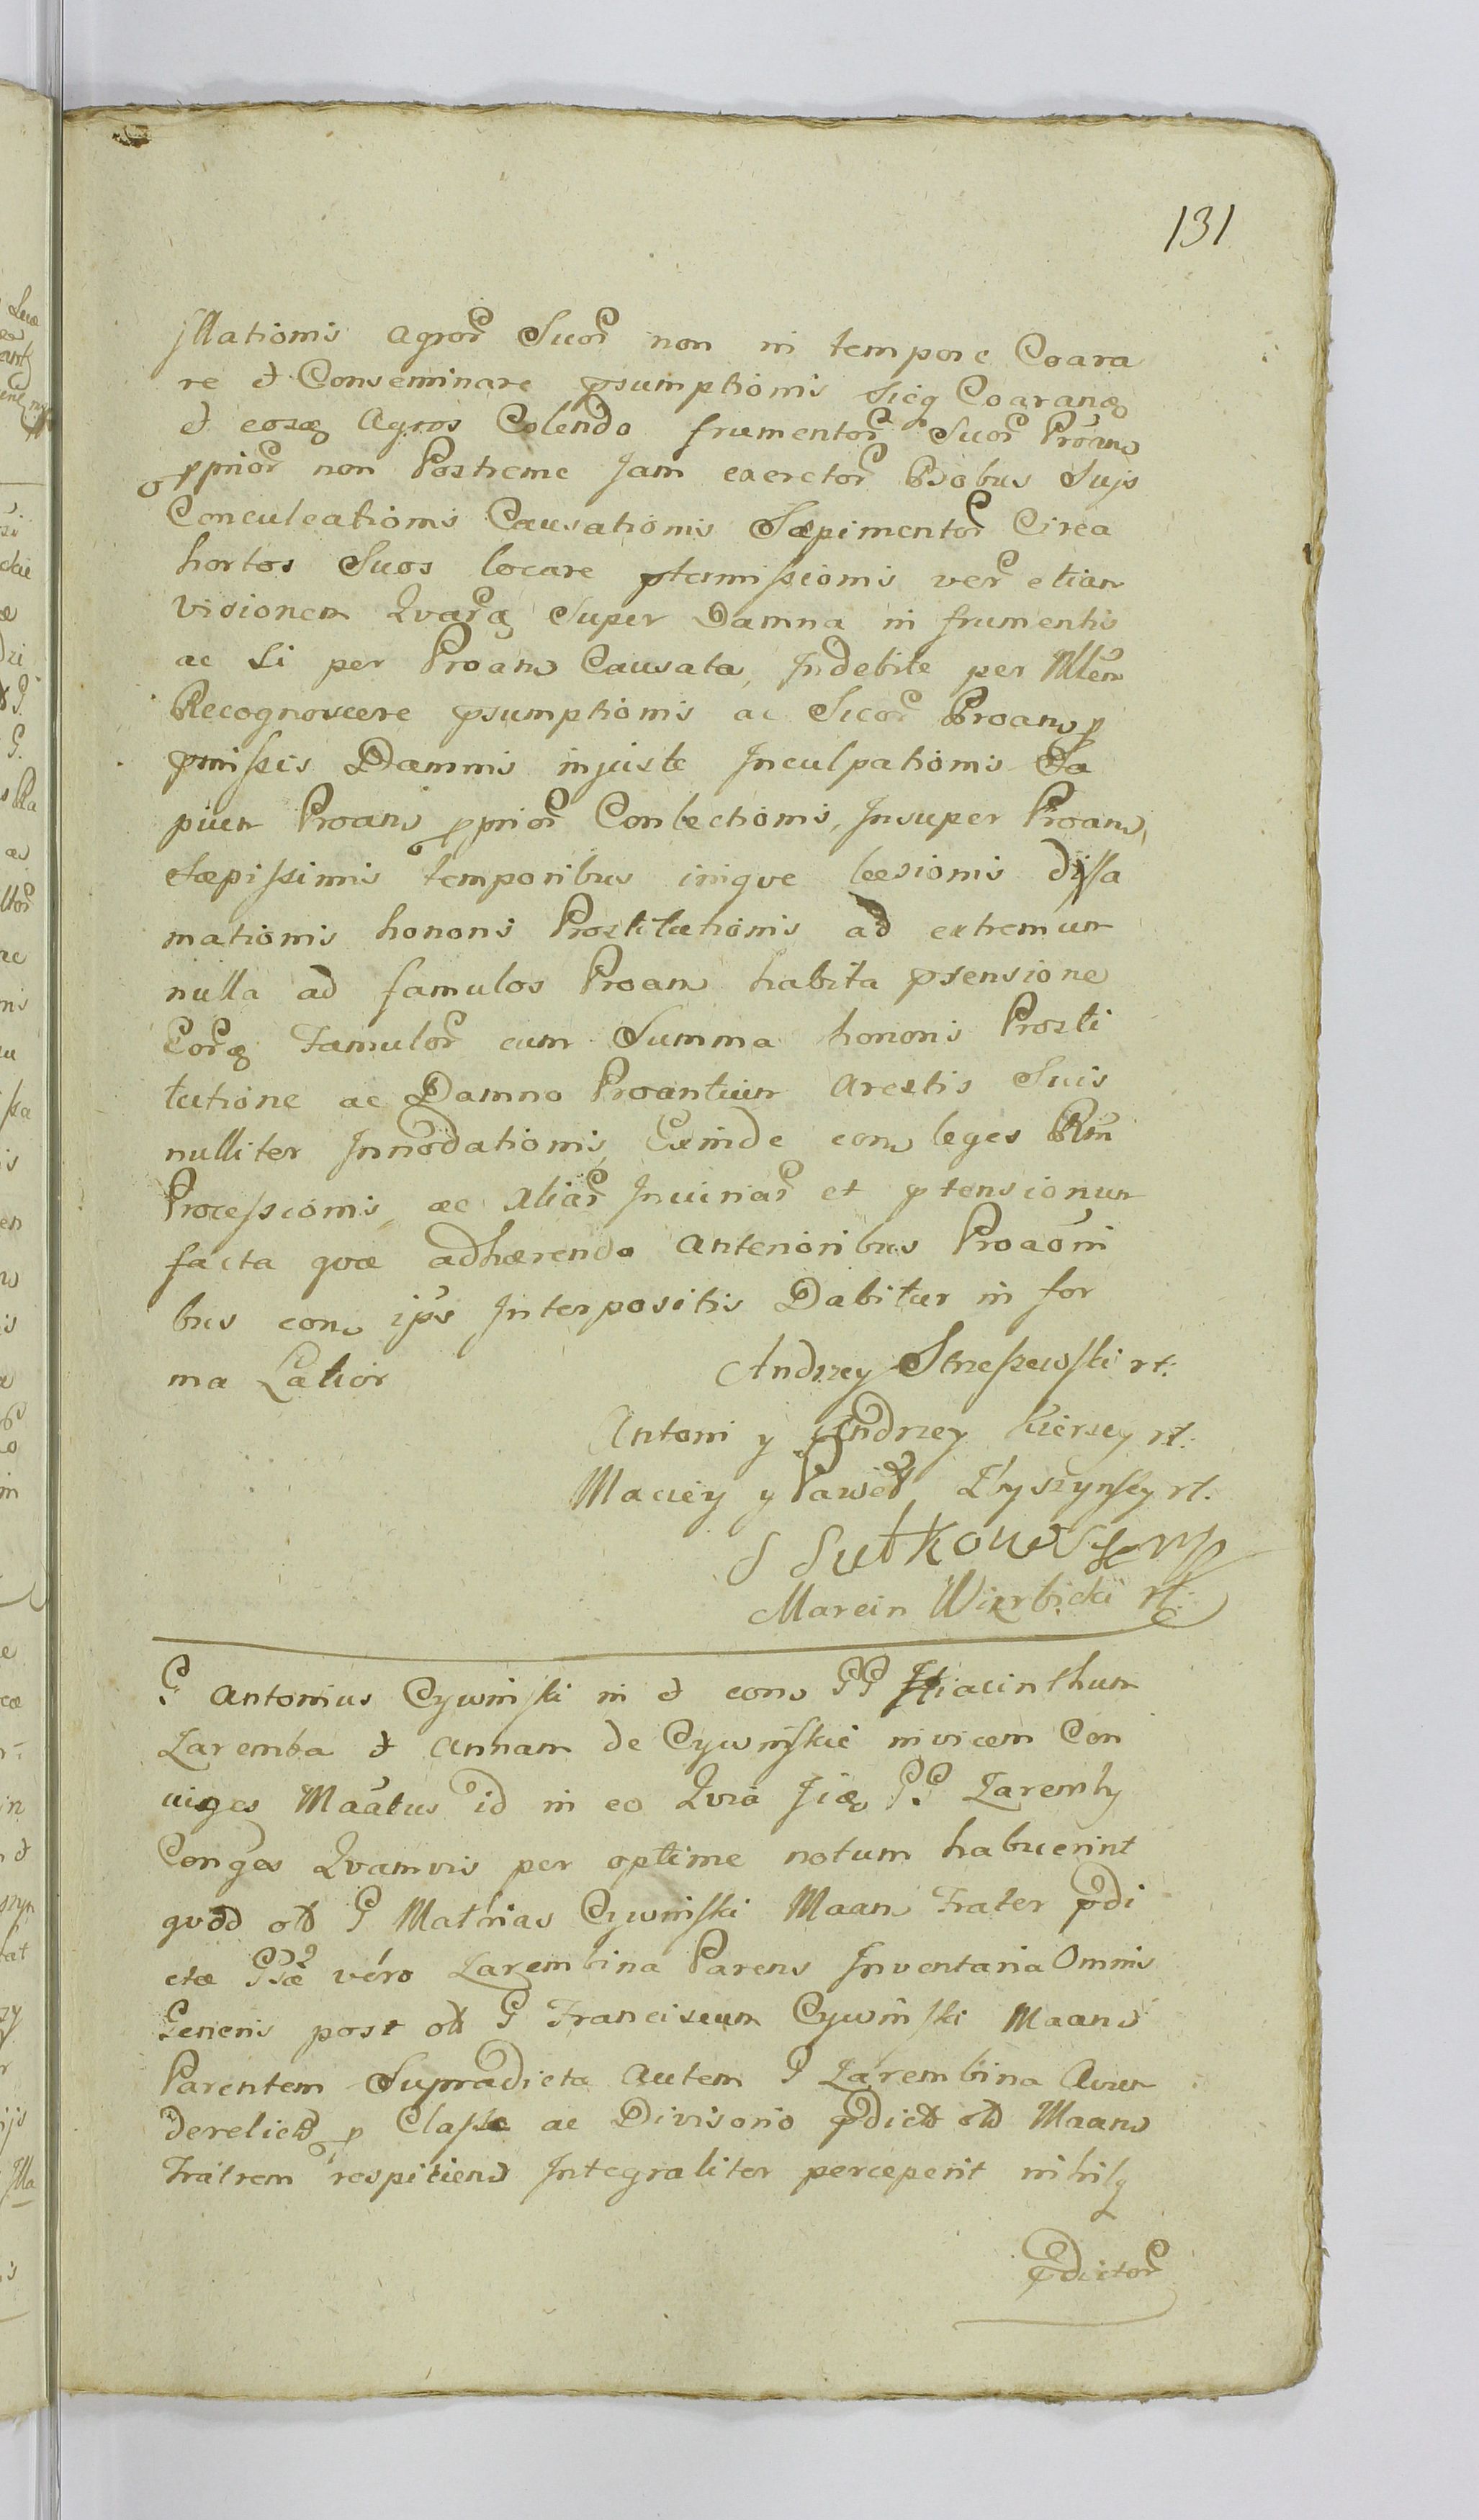 131
Illationis agror Suor non in tempore Coara
re et Conseminare psumptionis Sicq Coaranq
et eosq Agros Colendo frumentor Suor Proans
pprior non Postreme Jam exerctor Bobus Sujs
Conculcationis Causationis Sæpimentor Circa
hortos Suos locare ptermissionis ver etiam
Visionem Qvarq Super Damna in frumentis
ac Si per Proans Causata, Indebite per Mltem
Recognoscere psumptionis ac Sicor Proans p
pmissis Damnis injuste Inculpationis Sa
pium Proans pprior Conlectionis, Insuper Proans,
etæpissimis temporibus iniqve læsionis diffa
mationis honoris Prostitutionis ad extremum
nulla ad famulos Proans habita prensione
Eorq Famulor cum Summa honoris Prosti
tutione ac Damno Proantium arestis Suis
nulliter Innodationis, Exinde cons leges Rni
Processionis, ac Aliar Iniuriar et ptensionum
facta qvæ adhærendo anterioribus Proaoni
bus cons ips Interpositis Dabitur in for
ma Latior
Andrzey Strzeszewski rt:
Antoni y Andrzey Kiersey rt:
Maciey y Paweł Łyszynscy rt.
S Sutkowski mp
Marcin Wierbicki rt:
G Antonius Cywinski in et cons GG Hiacinthum
Zaremba et Annam de Cywinskie invicem Con
iuges Maatus id in eo Qvia Jiæ GG Zaremby
Conges Qvamvis per optime notum habuerint
qvod olt G Mathias Cywinski Maans Frater pdi
ctæ Gsæ véro Zarembina Parens Inventaria Omnis
Generis post olt G Franciscum Cywinski Maans
Parentem Supradicta autem G Zarembina Avum
derelict p Classe ac Divisorio pdict olt Maans
Fratrem respitiens Integraliter perceperit nihilq
pdictor